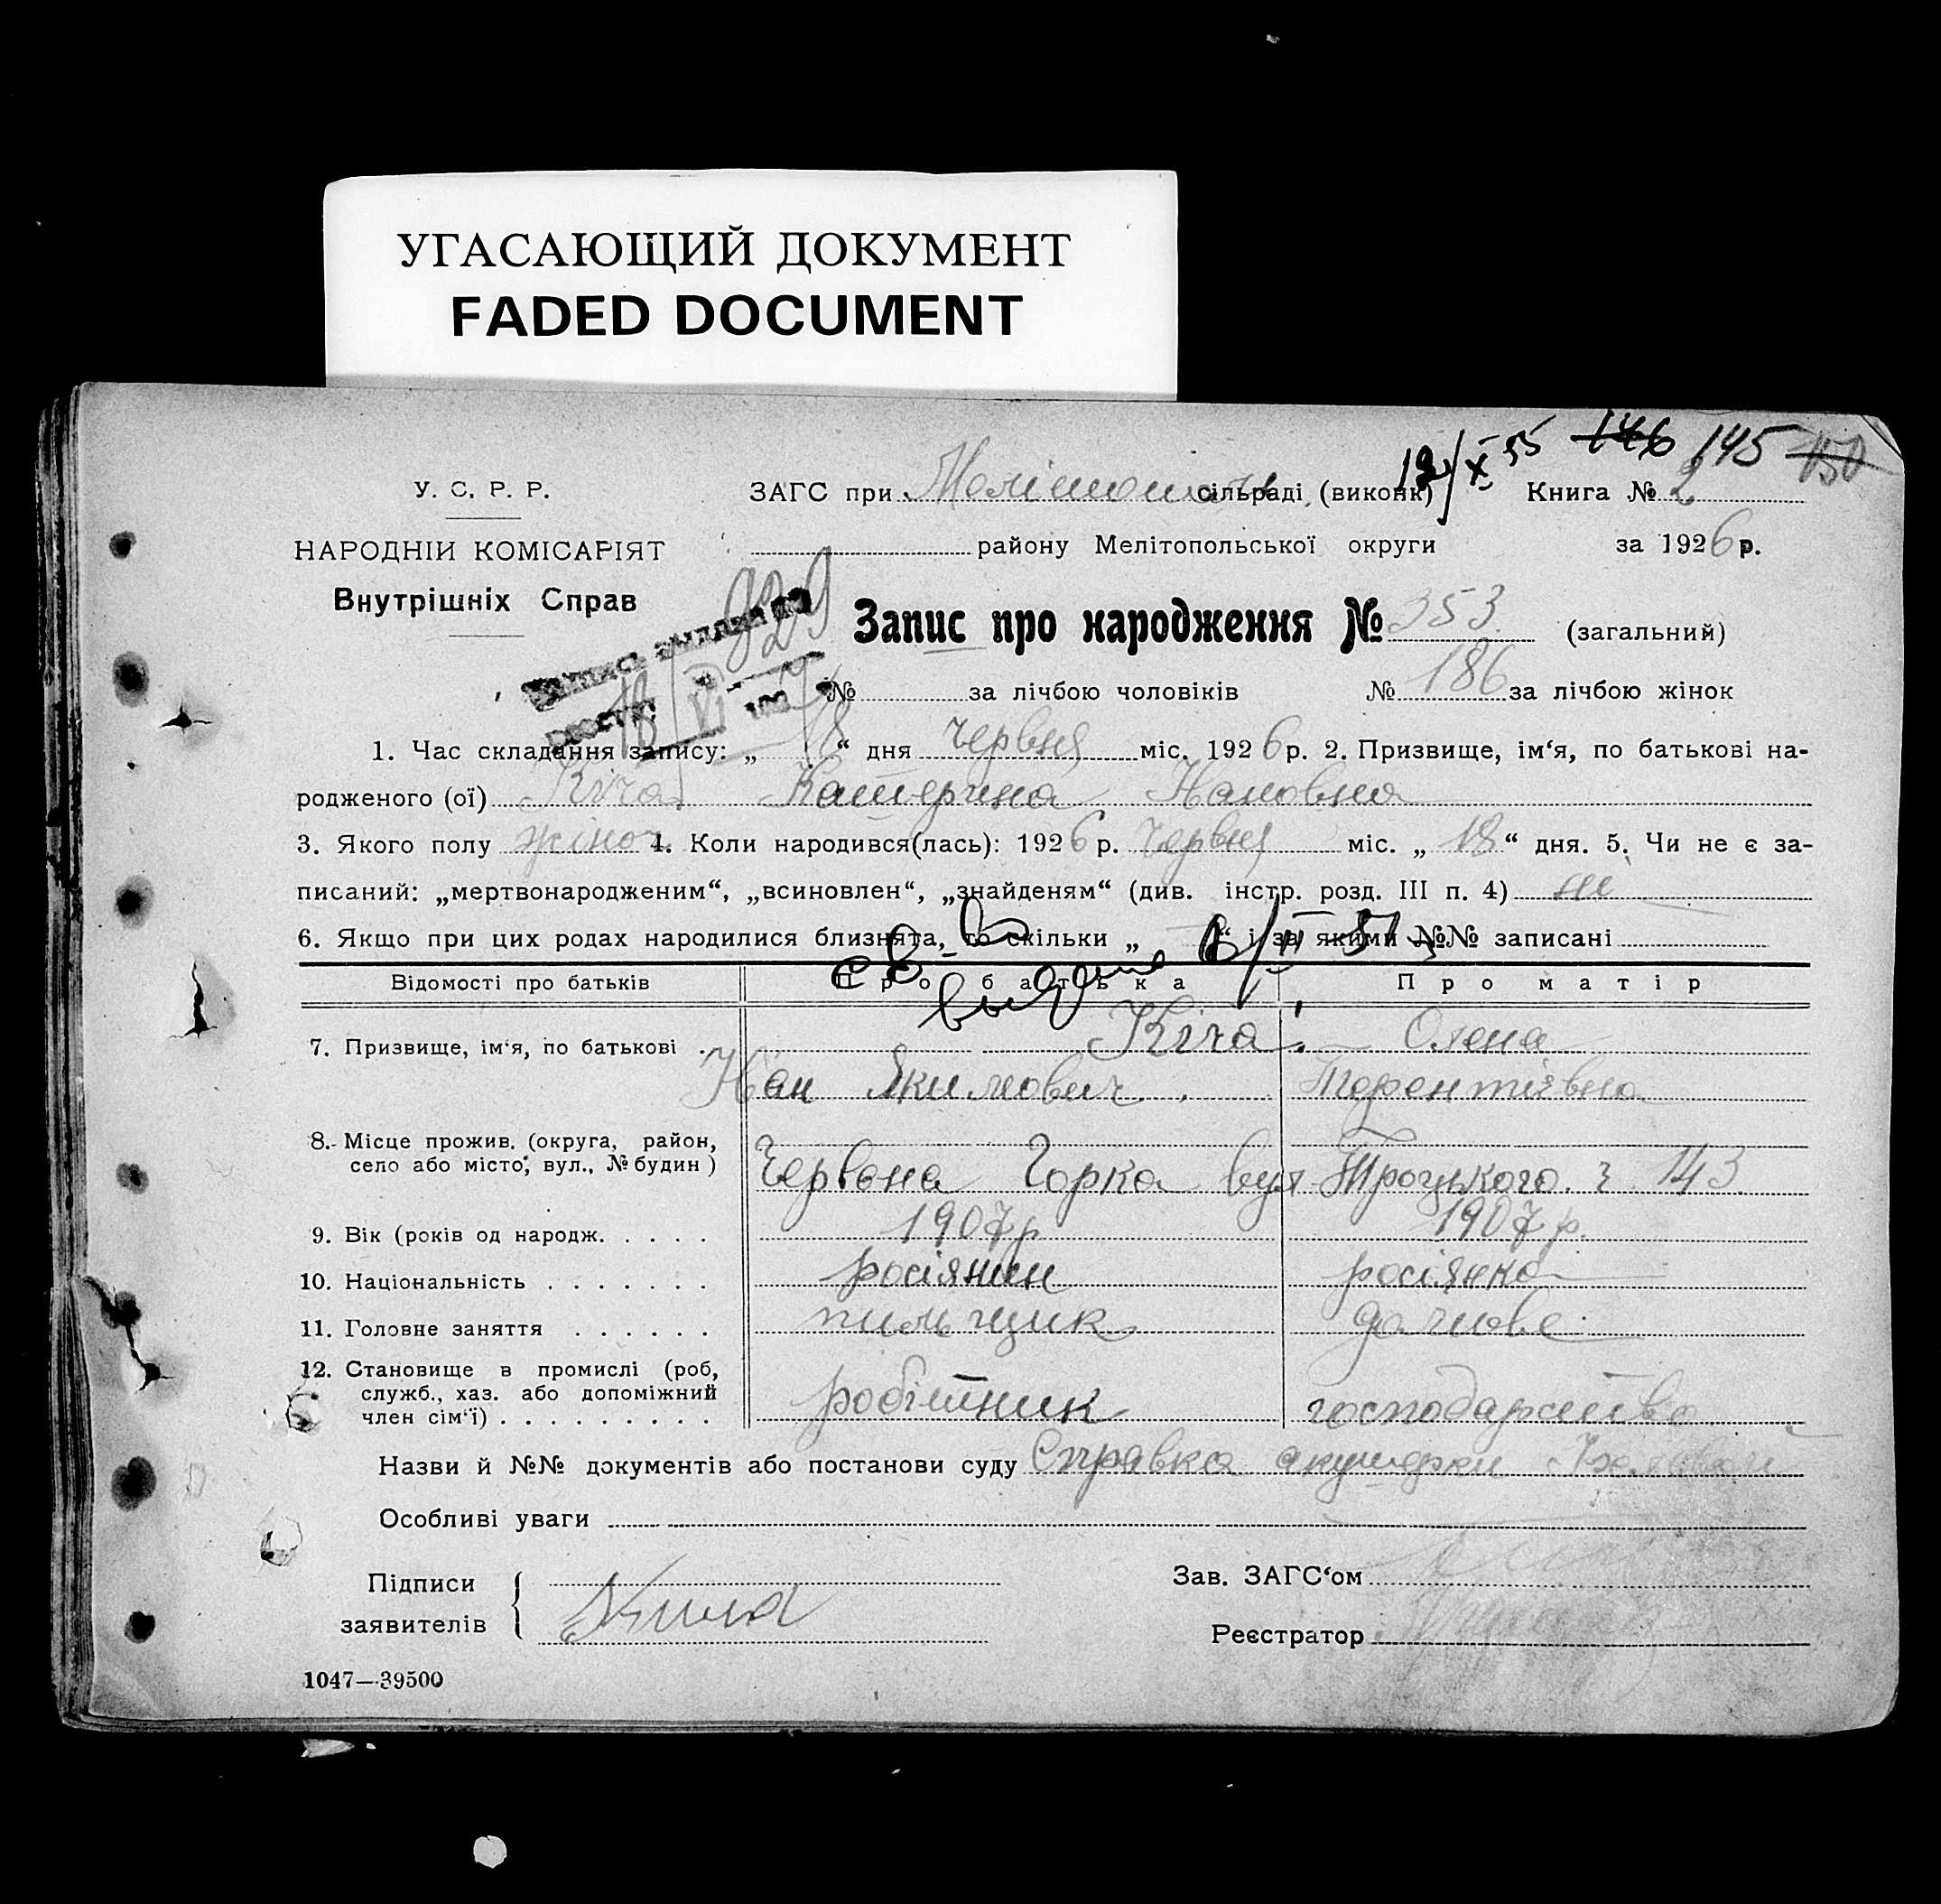 УГАСАЮЩИЙ ДОКУМЕНТ
FADED DOCUMENT
12/X 55 146 145 150
У. С. Р. Р.
ЗАГС при Мелітополь сільраді (виконк) Книга № 2
НАРОДНІИ КОМІСАРІЯТ
району Мелітопольської округи за 1926 р.
Внутрішніх Справ
929
Запис про народження № 353 (загальний)
18/VI
№ за лічбою чоловіків № 186 за лічбою жінок
1. Час складання запису: „ 18 “ дня червня міс. 1926 р. 2. Призвище, ім‘я, по батькові на-
родженого (ої) Кіча Катерина Йановна
3. Якого полу жіноч. 4. Коли народився(лась): 1926 р. Червня міс. „ 18 “ дня. 5. Чи не є за-
писаний: „мертвонародженим“, „всиновлен“, „знайденям“ (див. інстр. розд. III п. 4) не
6. Якщо при цих родах народилися близнята, то скільки „ “ і за якими №№ записані
св-во
выдано
Відомості про батьків Про батька Про матір
7. Призвище, ім‘я, по батькові Кіча Олена
Йан Якимович Терентіївна
8. Місце прожив. (округа, район,
село або місто, вул., № будин)
Червона Горка вул Троцького ч 143
9. Вік (років од народж. 1907 р 1907 р.
10. Національність росіянин росіянка
11. Головне заняття пильщик домове
12. Становище в промислі (роб,
служб., хаз. або допоміжний
член сім‘ї) робітник господарство
Назви й №№ документів або постанови суду Справка акушерки
Особливі уваги
Підписи
заявителів
Зав. ЗАГС‘ом
Реєстратор
1047—39500